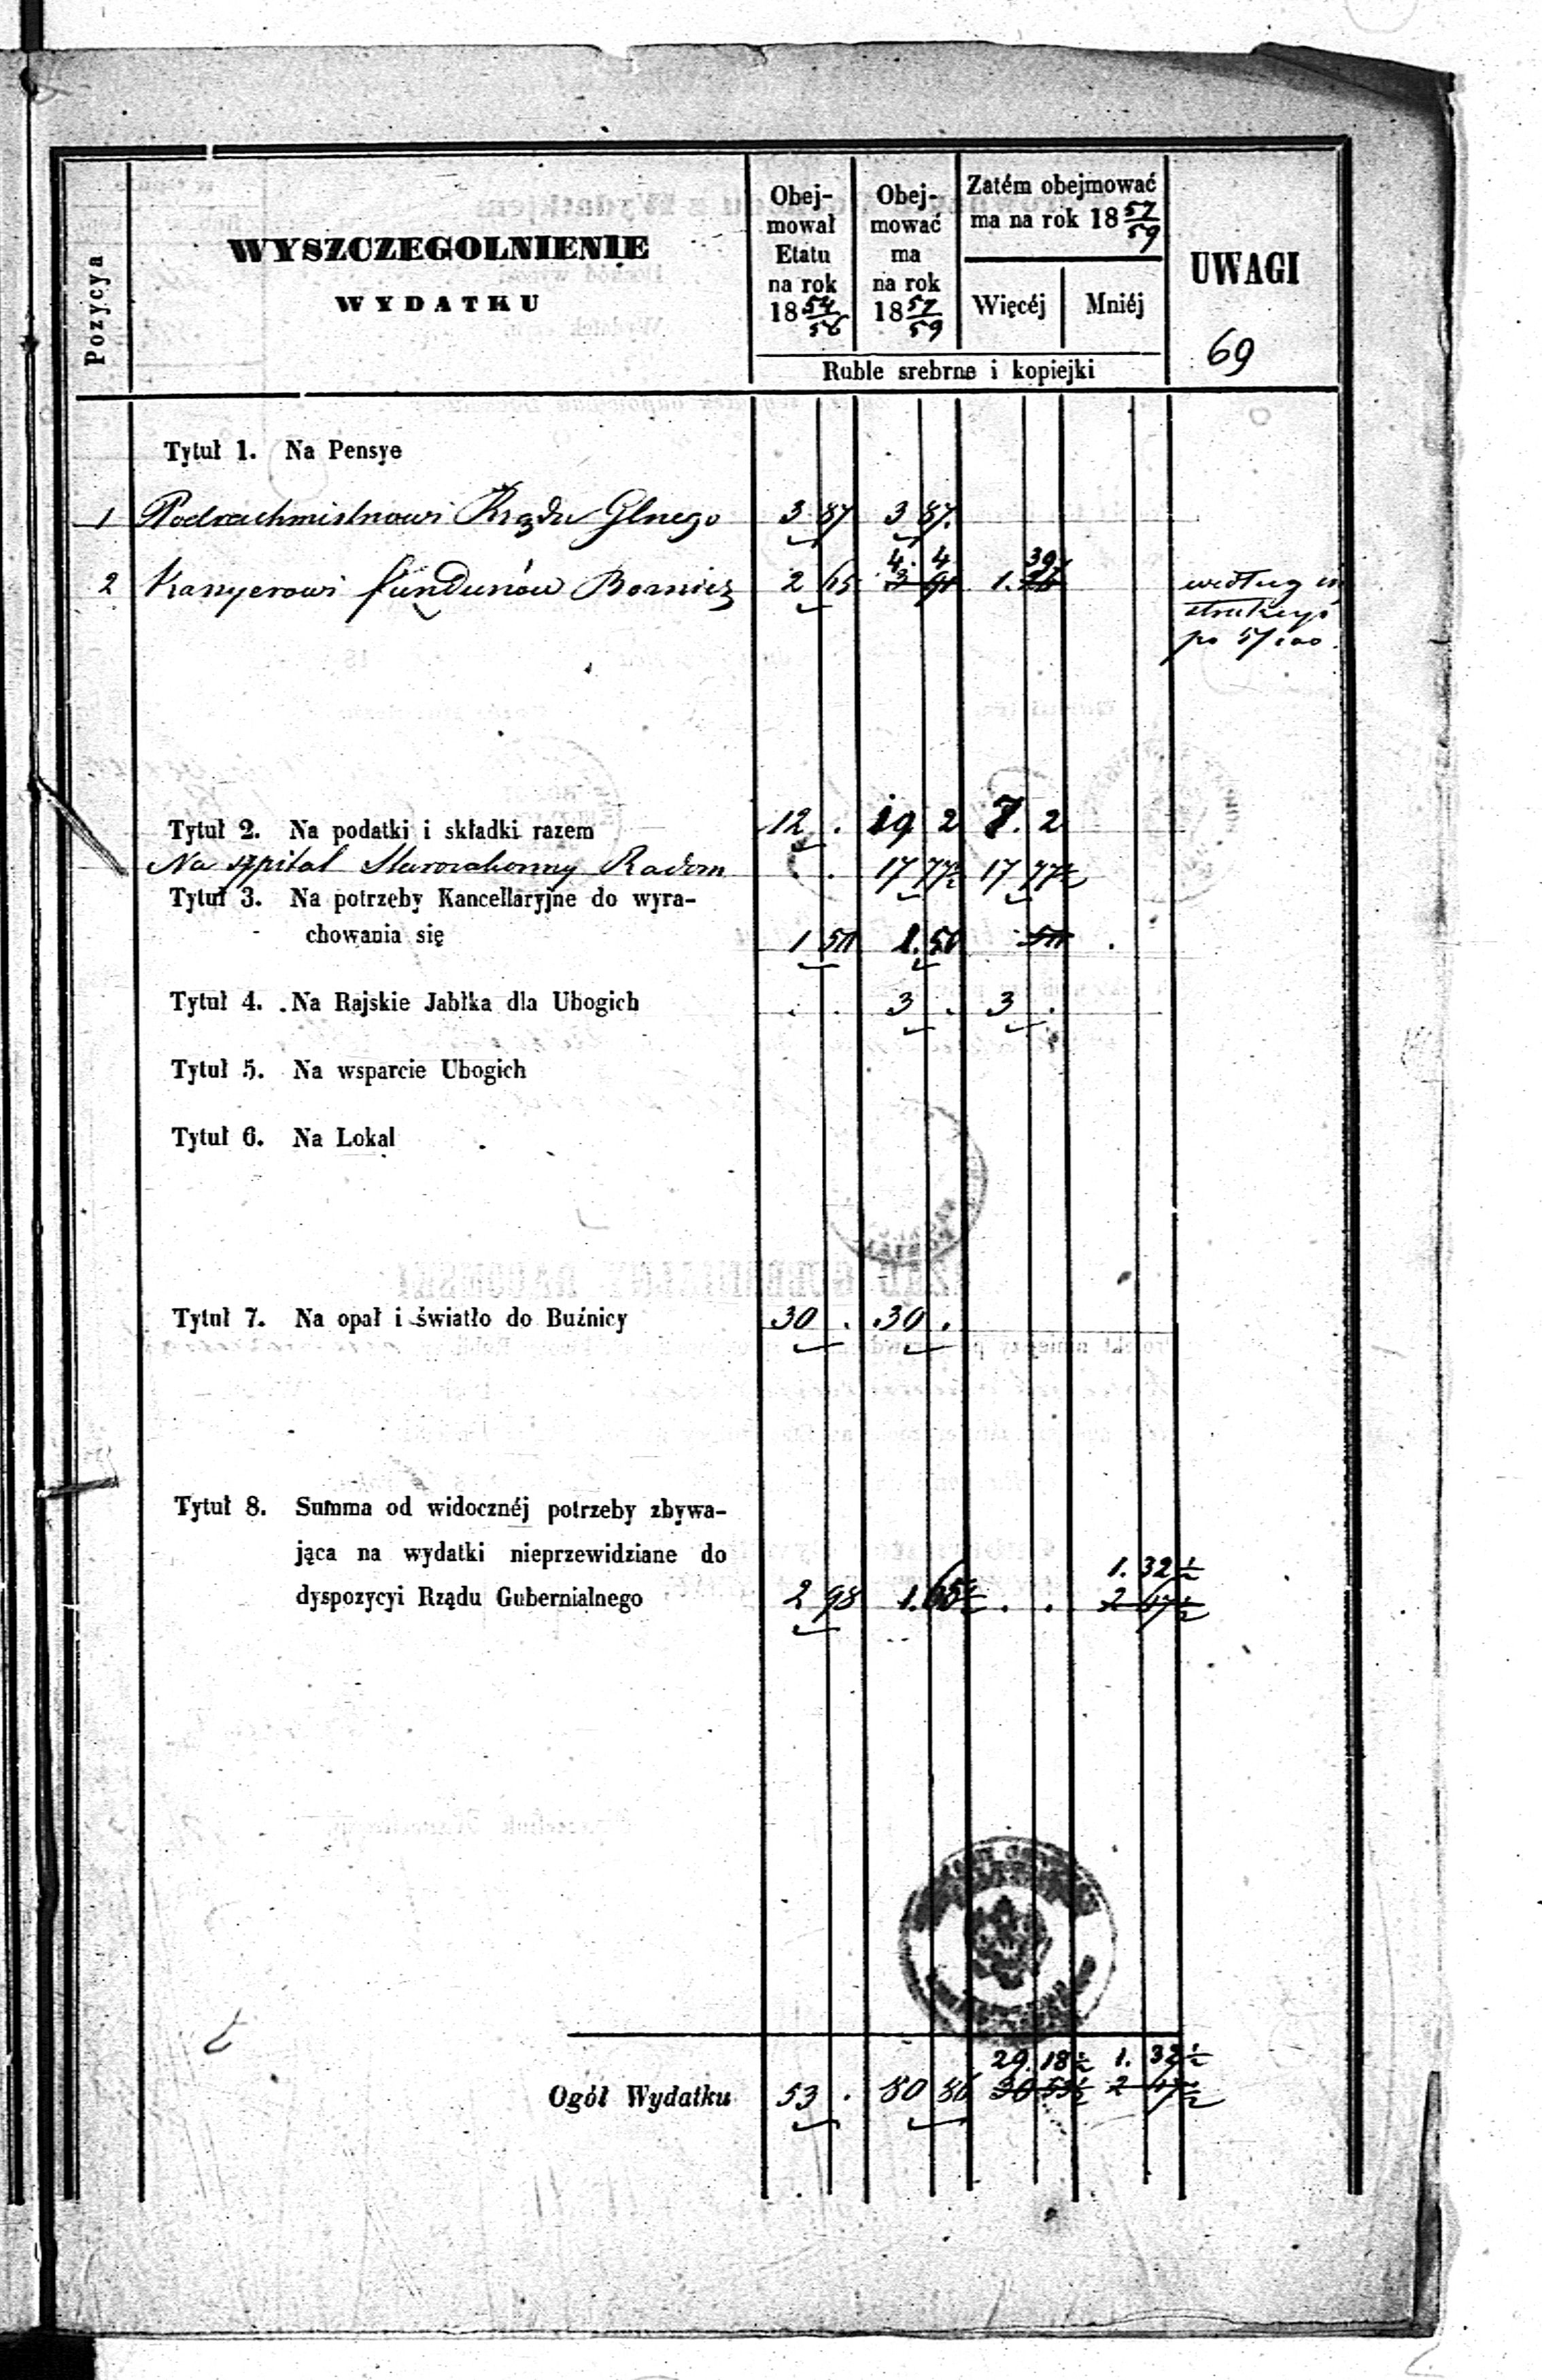 Pozycya
WYSZCZEGOLNIENIE
WYDATKU
Obej-
mował
Etatu
na rok
18 54/56
Obej-
mować
ma
na rok
18 57/59
Zatém obejmować
ma na rok 18 57/59
Więcéj Mniéj
Ruble srebrne i kopiejki
UWAGI
69
Tytuł 1. Na Pensye
1 Podrachmistrzowi Rządu Glnego 3 87 3 87.
4. 4 39
2 Kassyerowi funduszów Bożnicz 2 65 3 91 1. 26 według in
strukcyi
po 5/100.
Tytuł 2. Na podatki i składki razem 12 . 19 2 7. 2
Na szpital Starozakonny Radom . . 17 77½ 17 77½
Tytuł 3. Na potrzeby Kancellaryjne do wyra-
chowania się 1 50 1. 50 . 50 .
Tytuł 4. Na Rajskie Jabłka dla Ubogich . . 3 . 3 .
Tytuł 5. Na wsparcie Ubogich
Tytuł 6. Na Lokal
Tytuł 7. Na opał i światło do Buźnicy 30 . 30 .
Tytuł 8. Summa od widocznéj potrzeby zbywa-
jąca na wydatki nieprzewidziane do
1. 32½
dyspozycyi Rządu Gubernialnego 2 98 1. 65½ . . 2 47½
29. 18½ 1. 32½
Ogół Wydatku 53 . 80 86 30 53½ 2 47½